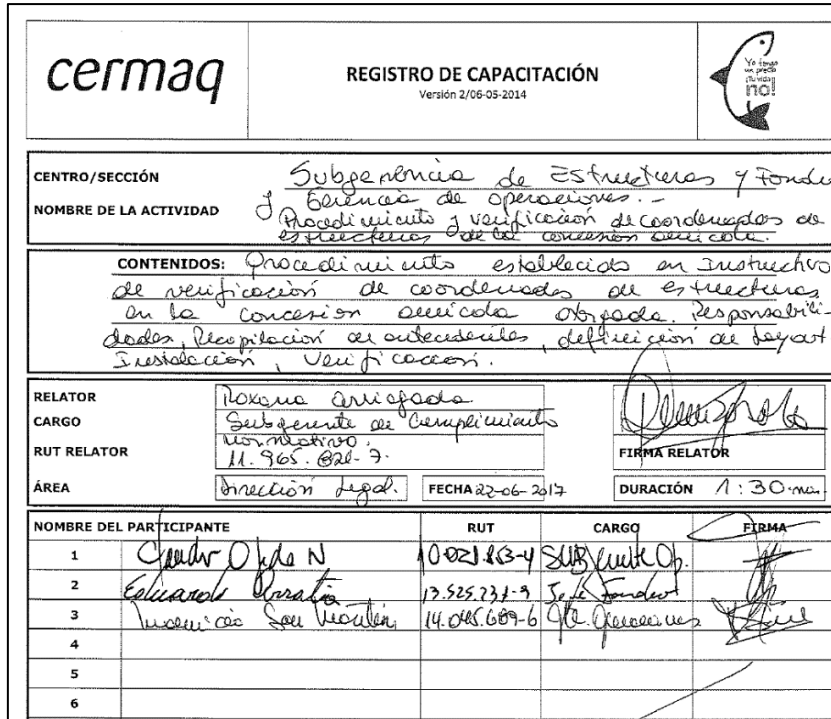 cermaq
REGISTRO DE CAPACITACIÓN
Versión 2/06-05-2014
Yo tengo
un precio
¡Tu vida
no!
CENTRO/SECCIÓN
Subgerencia de Estructuras y Fondeo
y Gerencia de operaciones.-
NOMBRE DE LA ACTIVIDAD
Procedimiento y verificación de coordenadas de
estructuras de la concesión acuícola.
CONTENIDOS: Procedimiento establecido en Instructivo
de verificación de coordenadas de estructuras
en la concesión acuícola otorgada. Responsabili-
dades, Recopilación de antecedentes, definición de Layout
Instalación, Verificación.
RELATOR Roxana Arriagada
CARGO Subgerente de Cumplimiento
normativo.
RUT RELATOR 11.965.821-7.
FIRMA RELATOR
ÁREA Dirección Legal. FECHA 22-06-2017 DURACIÓN 1:30
NOMBRE DEL PARTICIPANTE RUT CARGO FIRMA
1 N
2 Eduardo 13.525.231-9 Jefe Fondeo
3 San Martín 14.045.689-6
4
5
6